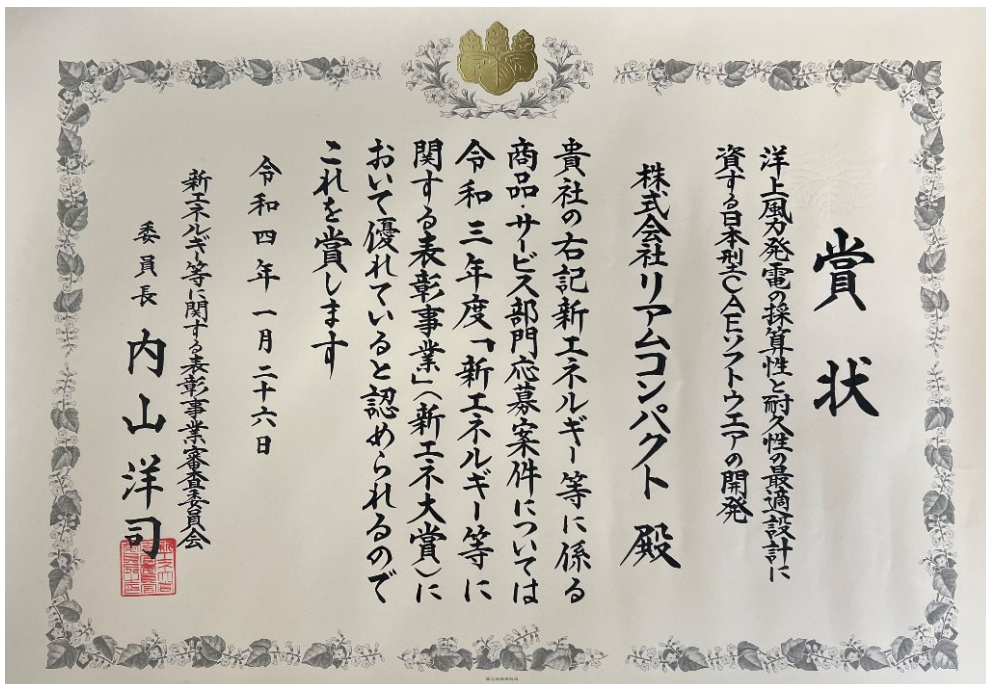 賞状
洋上風力発電の採算性と耐久性の最適設計に
資する日本型CAEソフトウエアの開発
株式会社リアムコンパクト 殿
貴社の右記新エネルギー等に係る
商品・サービス部門応募案件については
令和三年度「新エネルギー等に
関する表彰事業」(新エネ大賞)に
おいて優れていると認められるので
これを賞します
令和四年一月二十六日
新エネルギー等に関する表彰事業審査委員会
委員長 内山洋司